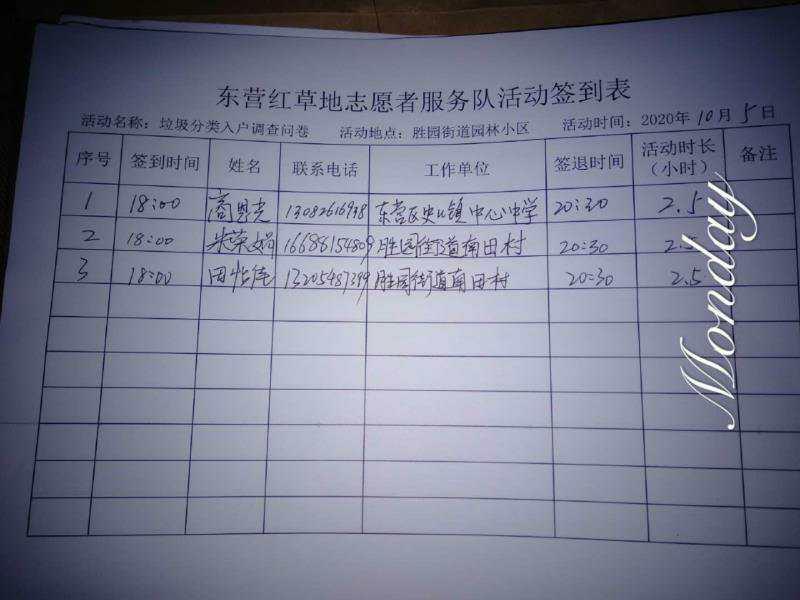 东营红草地志愿者服务队活动签到表
活动名称：垃圾分类入户调查问卷 活动地点：胜园街道园林小区 活动时间：2020年10月5日
序号 签到时间 姓名 联系电话 工作单位 签退时间 活动时长（小时） 备注
1 18:00 商恩光 东营区史口镇中心中学 20:30 2.5
2 18:00 米荣娟 16688154809 胜园街道南田村 20:30 2.5
3 18:00 田怡 13205487399 胜园街道南田村 20:30 2.5
Monday